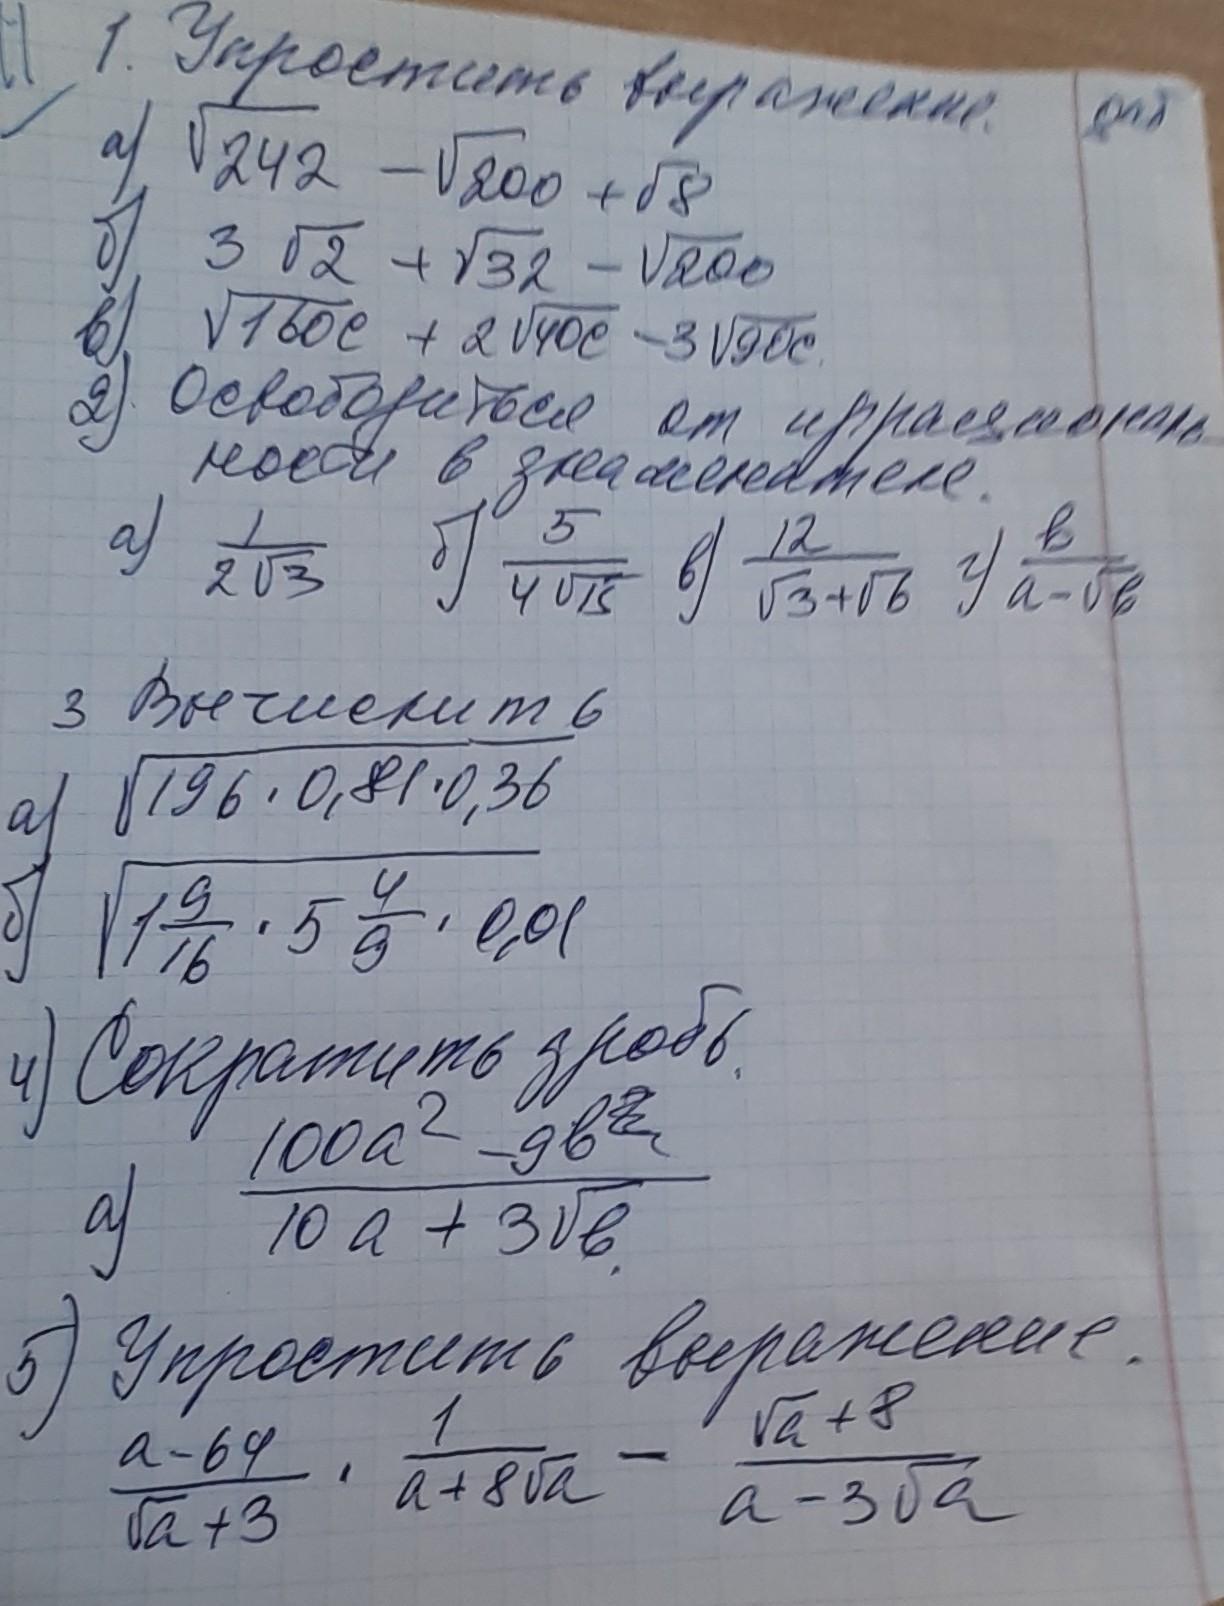 1. Упростить выражение.
а) √242 − √200 + √8
б) 3√2 + √32 − √200
в) √160c + 2√40c − 3√90c.
2). Освободиться от иррациональ
ности в знаменателе.
а) 1/(2√3) б) 5/(4√15) в) 12/(√3+√6) г) в/(а−√в)
3 Вычислить
а) √(196·0,81·0,36)
б) √(1 9/16 · 5 4/9 · 0,01)
4) Сократить дробь.
а) (100а² − 9в)/(10а + 3√в).
5) Упростить выражение.
(а−64)/(√а+3) · 1/(а+8√а) − (√а+8)/(а−3√а)